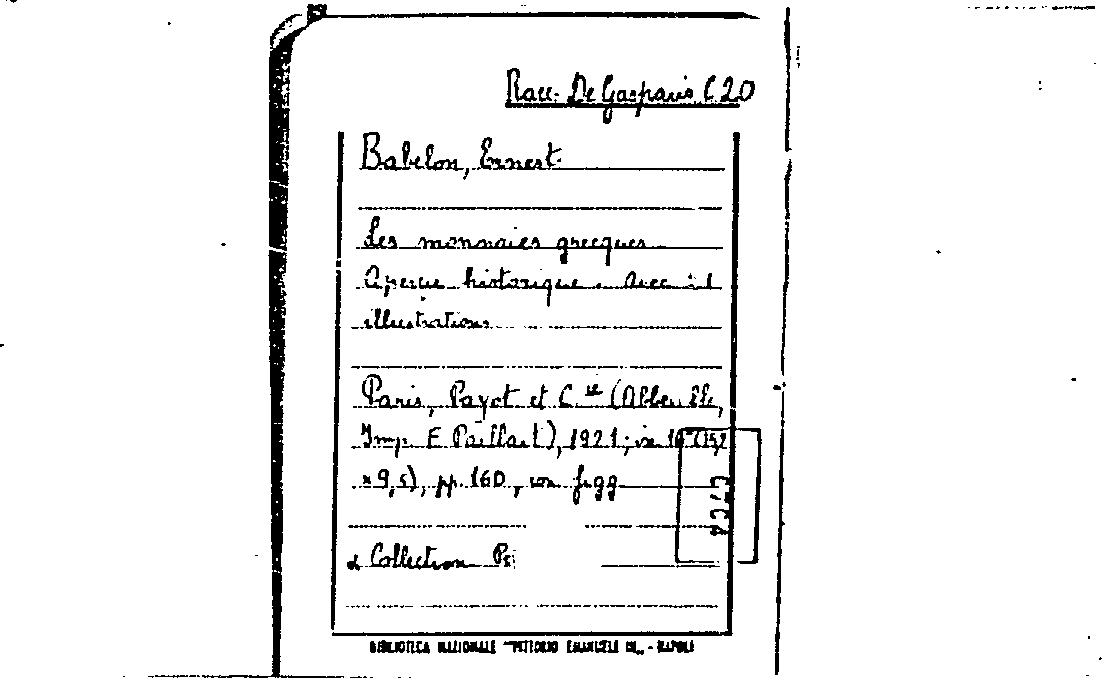 Racc. De Gasparis C 20
Babelon, Ernest
Les monnaies grecques
Aperçu historique. Avec
illustrations
Paris, Payot et C.ie (Abbeville,
Imp. F. Paillart), 1921; in 16° (15,2
× 9,5), pp. 160, con figg
Collection
BIBLIOTECA NAZIONALE "VITTORIO EMANUELE III" - NAPOLI